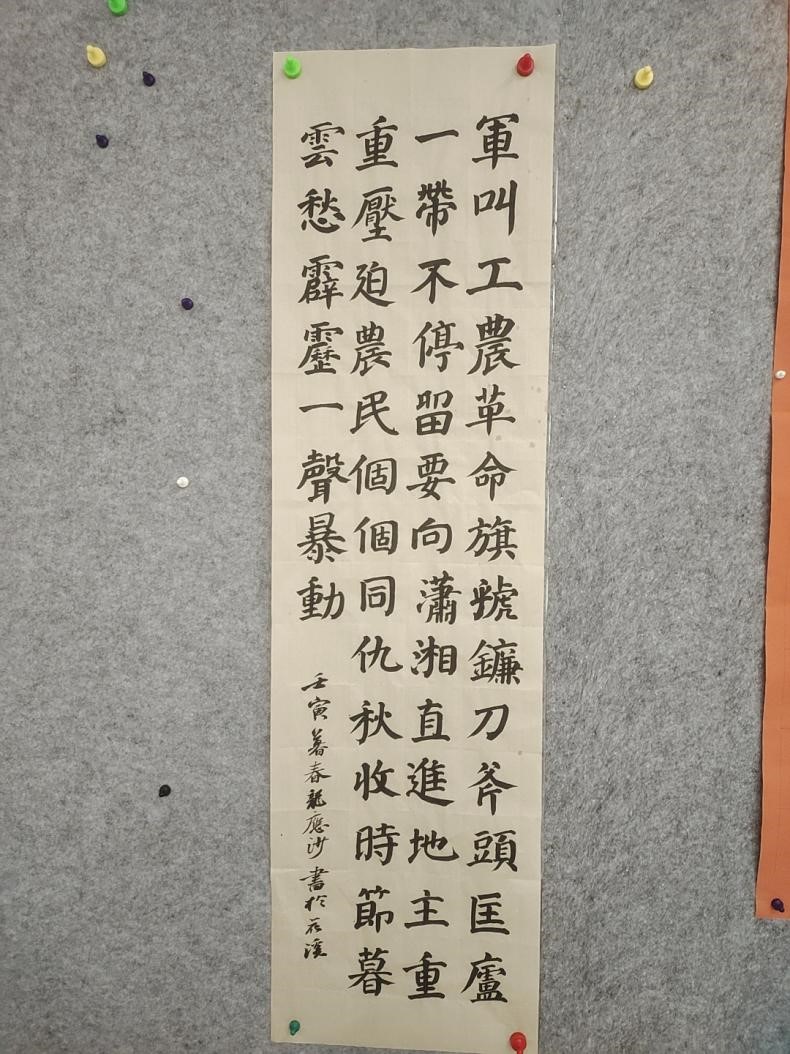 軍叫工農革命旗號鐮刀斧頭匡廬
一帶不停留要向瀟湘直進地主重
重壓迫農民個個同仇秋收時節暮
雲愁霹靂一聲暴動
壬寅暮春龍應沙書於花溪